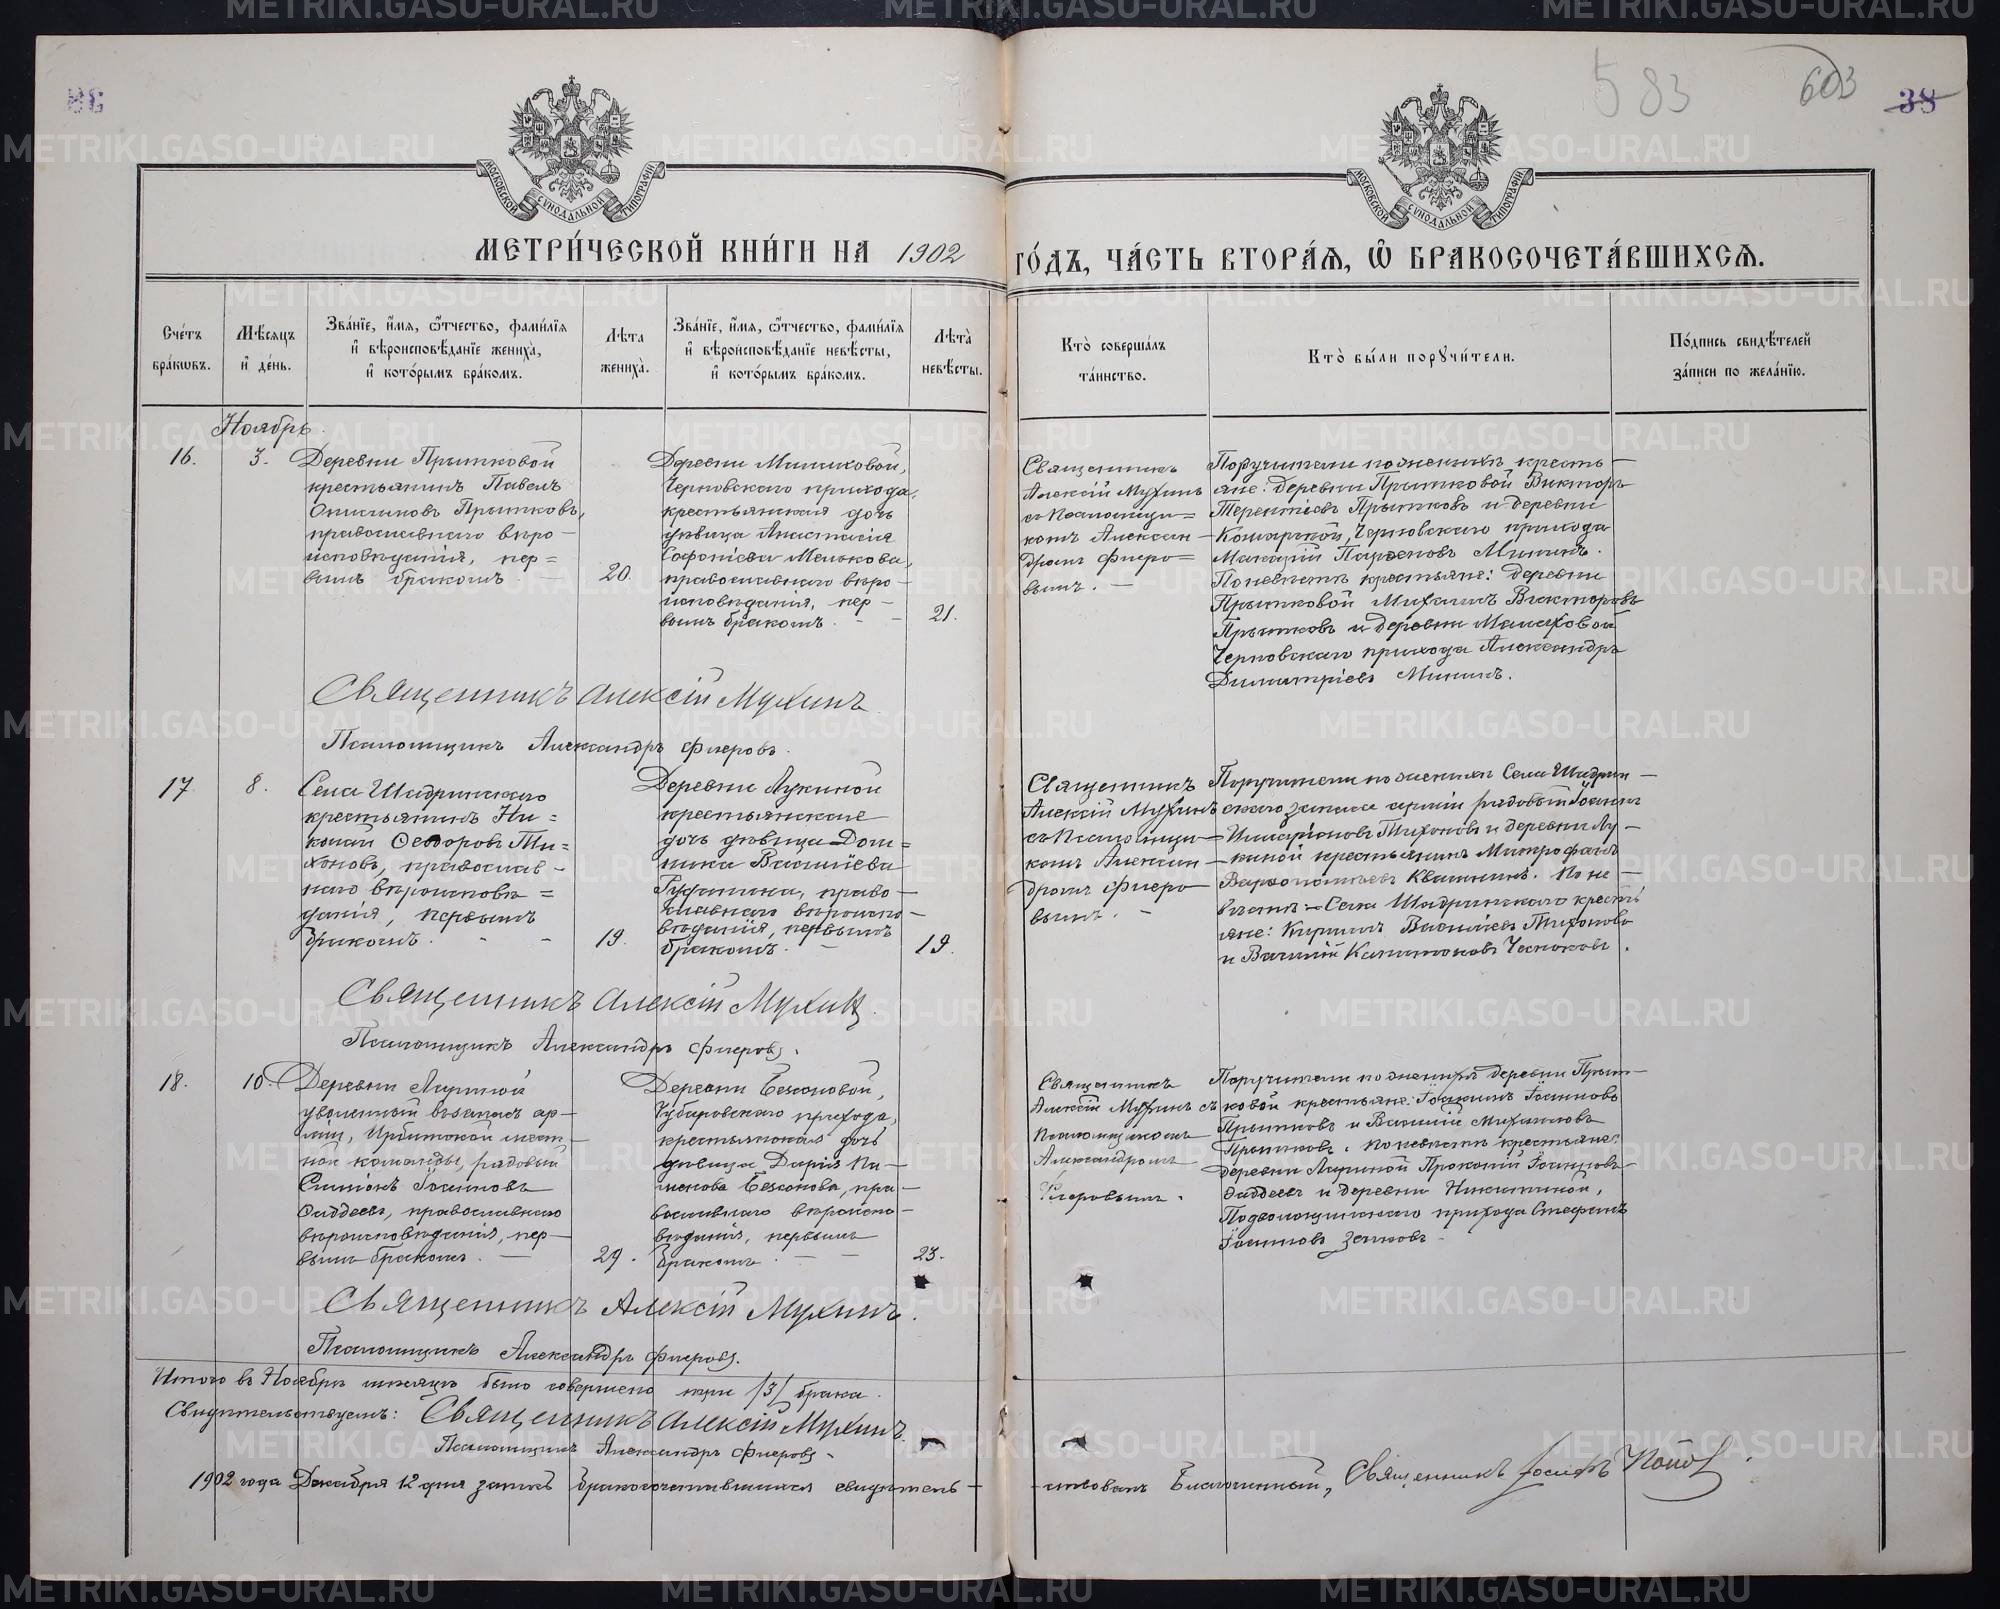 583
603
38
МОСКОВСКОЙ СѴНОДАЛЬНОЙ ТИПОГРАФІИ
МОСКОВСКОЙ СѴНОДАЛЬНОЙ ТИПОГРАФІИ
МЕТРИ́ЧЕСКОЙ КНИ́ГИ НА 1902 ГО́ДЪ, ЧА́СТЬ ВТОРА́Я, Ѡ БРАКОСОЧЕТА́ВШИХСЯ.
Сче́тъ
бра́кѡвъ.
Мѣ́сяцъ
и҆ де́нь.
Зва́нїе, и҆́мя, ѻ҆́тчество, фами́лїя
и҆ вѣроисповѣ́данїе жениха̀,
и҆ кото́рымъ бра́комъ.
Лѣ́та
жениха̀.
Зва́нїе, и҆́мя, ѻ҆́тчество, фами́лїя
и҆ вѣроисповѣ́данїе невѣ́сты,
и҆ кото́рымъ бра́комъ.
Лѣ́та
невѣ́сты.
Кто̀ соверша́лъ
та́инство.
Кто̀ бы́ли порꙋчи́тели.
По́дпись свидѣ́телей
за́писи по жела́нїю.
Ноябрь.
16.
3.
Деревни Прытковой
крестьянинъ Павелъ
Онисимовъ Прытковъ,
православнаго вѣро-
исповѣданія, пер=
вымъ бракомъ. —
20.
Деревни
Черновскаго прихода,
крестьянская дочь
дѣвица Анастасія
Софоніева Менькова,
православнаго вѣро-
исповѣданія, пер-
вымъ бракомъ. - -
21.
Священникъ
Алексій Мухинъ
съ Псаломщи=
комъ Алексан-
дромъ Флеро=
вымъ. —
Поручители по женихѣ кресть-
яне: деревни Прытковой Викторъ
Терентіевъ Прытковъ и деревни
Черновскаго прихода
Макарій Парѳеновъ Мининъ.
По невѣстѣ крестьяне: деревни
Прытковой Михаилъ Викторовъ
Прытковъ и деревни Малаховой
Черновскаго прихода Александръ
Димитріевъ Мининъ.
Священникъ Алексій Мухинъ
Псаломщикъ Александръ Флеровъ.
17
8.
Села Шадринскаго
крестьянинъ Ни=
колай Ѳеодоровъ Ти=
хоновъ, православ-
наго вѣроисповѣ=
данія, первымъ
бракомъ. - -
19.
Деревни Лукиной
крестьянская
дочь дѣвица Дом=
ника Васильева
право-
славнаго вѣроиспо-
вѣданія, первымъ
бракомъ. —
19.
Священникъ
Алексій Мухинъ
съ Псаломщи=
комъ Алексан-
дромъ Флеро-
вымъ. -
Поручители по женихѣ Села Шадрин-
скаго запаса арміи рядовой Іоаннъ
Иларіоновъ Тихоновъ и деревни Лу-
киной крестьянинъ Митрофанъ
Варѳоломѣевъ Квашнинъ. По не-
вѣстѣ: Села Шадринскаго кресть
яне: Кириллъ Васильевъ Тихоновъ
и Василій Капитоновъ Чесноковъ.
Священникъ Алексій Мухинъ.
Псаломщикъ Александръ Флеровъ.
18.
10.
Деревни Лариной
уволенный въ запасъ ар-
міи, Ирбитской мѣст-
ной команды, рядовой
Симіонъ Іоанновъ
Фаддеевъ, православнаго
вѣроисповѣданія, пер-
вымъ бракомъ. —
29.
Деревни Бессоновой,
прихода,
крестьянская дочь
дѣвица Дарія
Бессонова, пра-
вославнаго вѣроиспо-
вѣданія, первымъ
бракомъ. — —
23.
Священникъ
Алексій Мухинъ съ
Псаломщикомъ
Александромъ
Флеровымъ.
Поручители по женихѣ деревни Прыт-
ковой крестьяне: Іоакимъ Іоанновъ
Прытковъ и Василій Михаиловъ
Прытковъ. По невѣстѣ крестьяне:
деревни Лариной Прокопій Іоанновъ
Фаддеевъ и деревни Никитиной,
Подволошинскаго прихода Стефанъ
Іоанновъ Зенковъ.
Священникъ Алексій Мухинъ.
Псаломщикъ Александръ Флеровъ.
Итого въ Ноябрѣ мѣсяцѣ было совершено три /3/ брака.
Свидѣтельствуемъ: Священникъ Алексій Мухинъ.
Псаломщикъ Александръ Флеровъ.
1902 года Декабря 12 дня запись бракосочетавшихся свидѣтель-
ствовалъ Благочинный, Священникъ Іосифъ Поповъ.
METRIKI.GASO-URAL.RU